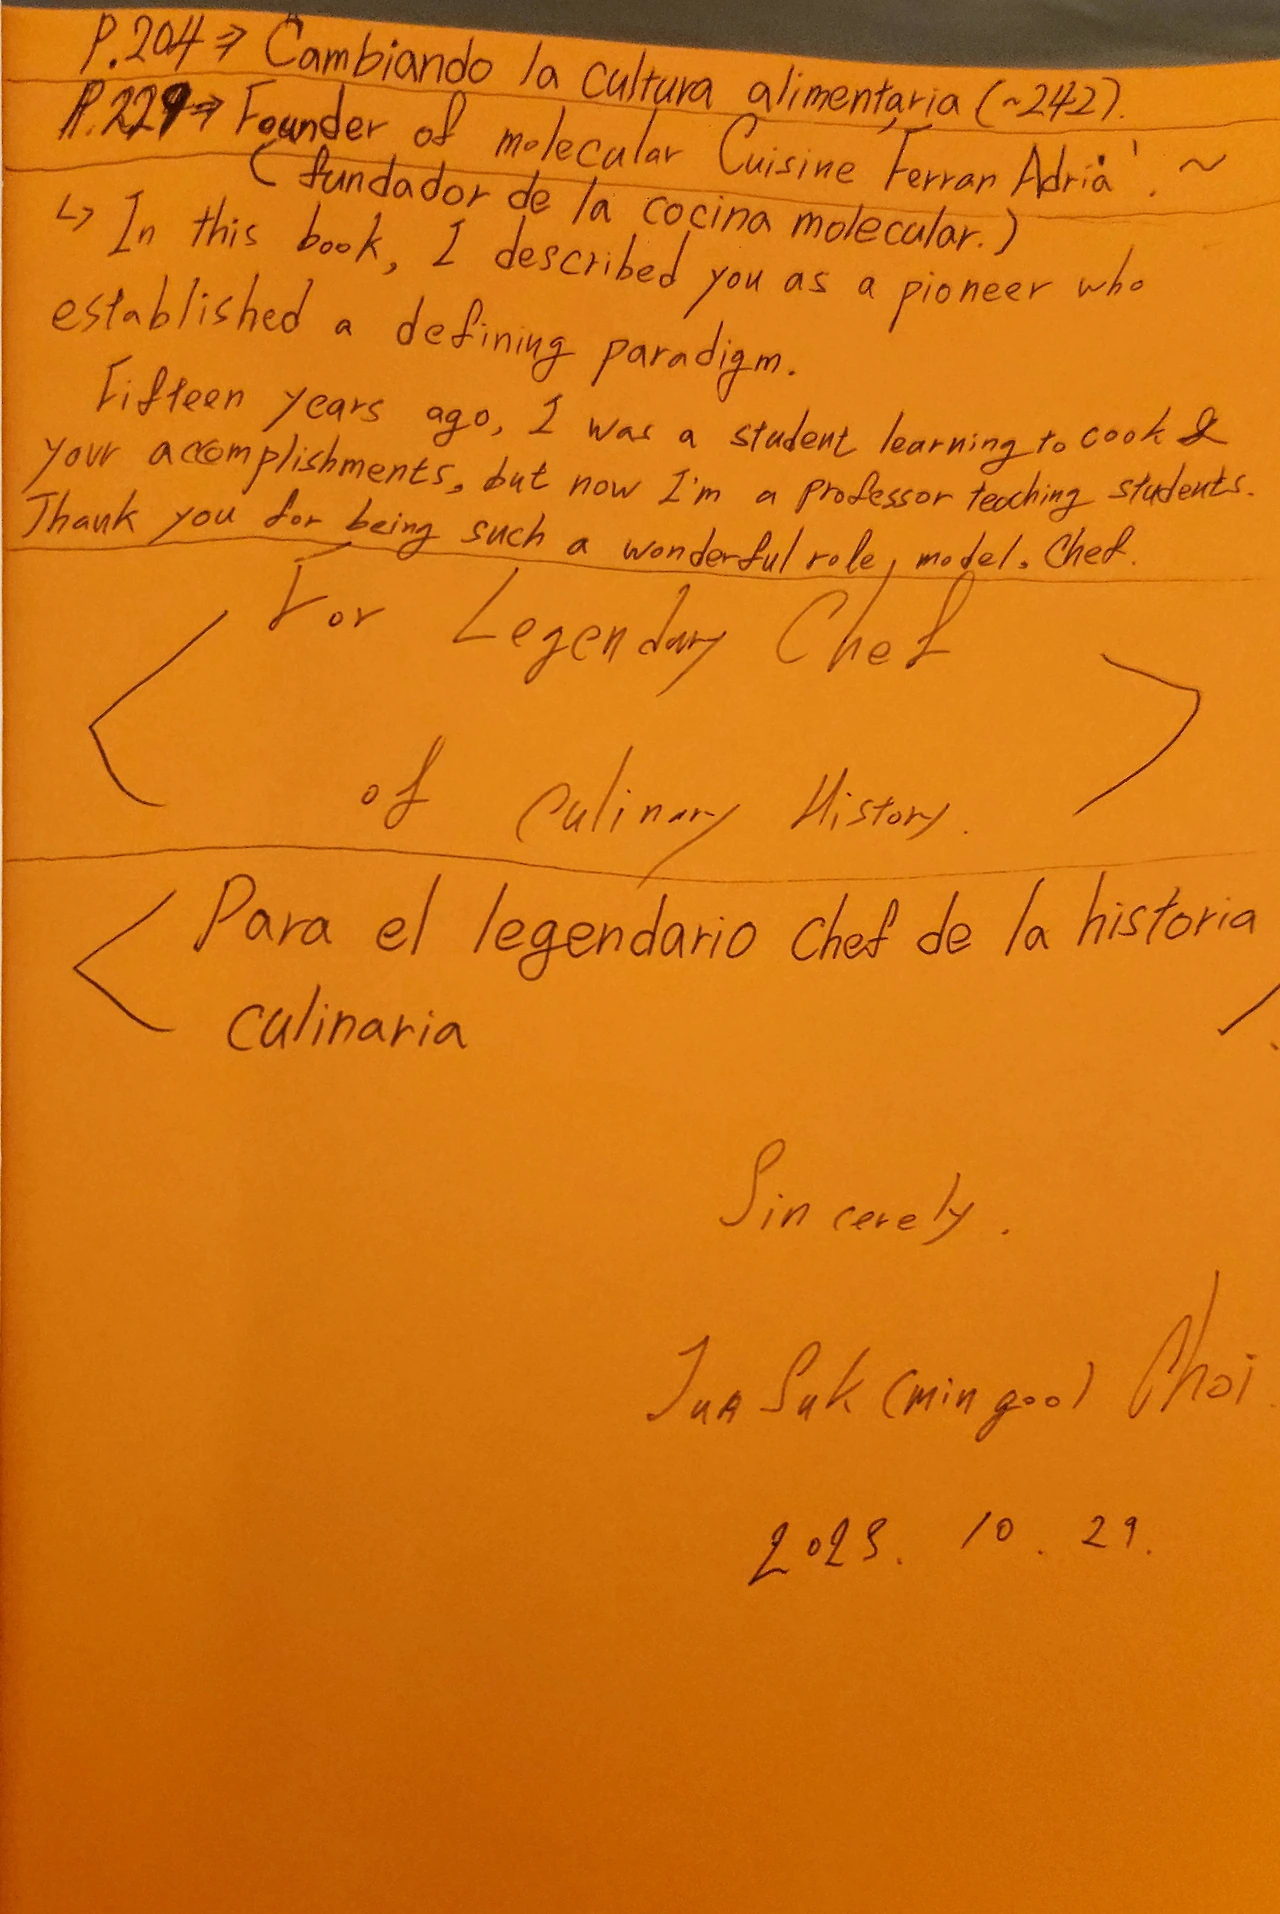 P.204⇒ Cambiando la cultura alimentaria (~242).
P.229⇒ Founder of molecular Cuisine 'Ferran Adrià'. ~
( fundador de la cocina molecular.)
↳ In this book, I described you as a pioneer who
established a defining paradigm.
Fifteen years ago, I was a student learning to cook &
your accomplishments, but now I'm a professor teaching students.
Thank you for being such a wonderful role model. Chef.
For Legendary Chef
of Culinary History.
Para el legendario Chef de la historia
culinaria
Sincerely.
Jun Suk (min goo) Choi
2023. 10. 29.